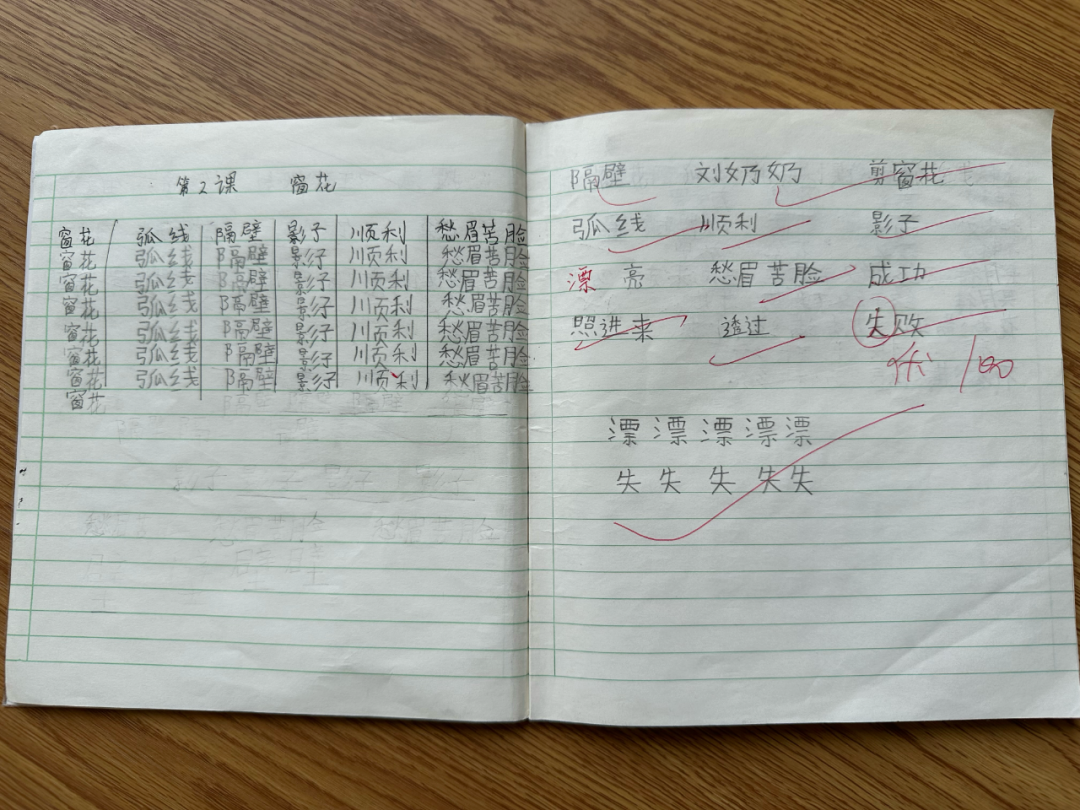 第2课 窗花
窗花 弧线 隔壁 影子 顺利 愁眉苦脸
窗花 弧线 隔壁 影子 顺利 愁眉苦脸
窗花 弧线 隔壁 影子 顺利 愁眉苦脸
窗花 弧线 隔壁 影子 顺利 愁眉苦脸
窗花 弧线 隔壁 影子 顺利 愁眉苦脸
窗花 弧线 隔壁 影子 顺利 愁眉苦脸
窗花 弧线 隔壁 影子 顺利 愁眉苦脸
窗花
隔壁 刘奶奶 剪窗花
弧线 顺利 影子
漂亮 愁眉苦脸 成功
照进来 透过 失败
优 100
漂 漂 漂 漂 漂
失 失 失 失 失